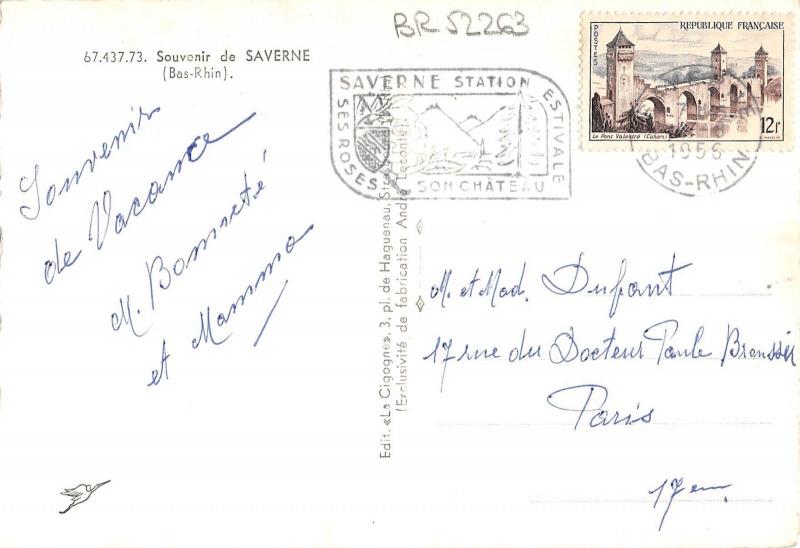 BR 52263
67.437.73. Souvenir de SAVERNE
(Bas-Rhin).
Souvenir
de Vacance
M. Bonneté
et Mamma
SAVERNE STATION ESTIVALE
SES ROSES
SON CHÂTEAU
POSTES
RÉPUBLIQUE FRANÇAISE
Le Pont Valentré (Cahors)
12F
1956
BAS-RHIN
Edit. «La Cigogne», 3, pl. de Haguenau,
(Exclusivité de fabrication André Leconte)
M. et Mad. Dufant
17 rue du Docteur Paule Broussier
Paris
17em